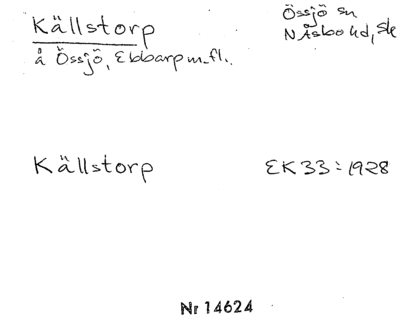 Källstorp
Össjö sn
N Åsbo hd, Sk
å Össjö, Ebbarp m.fl.
Källstorp
EK 33:1928
Nr 14624